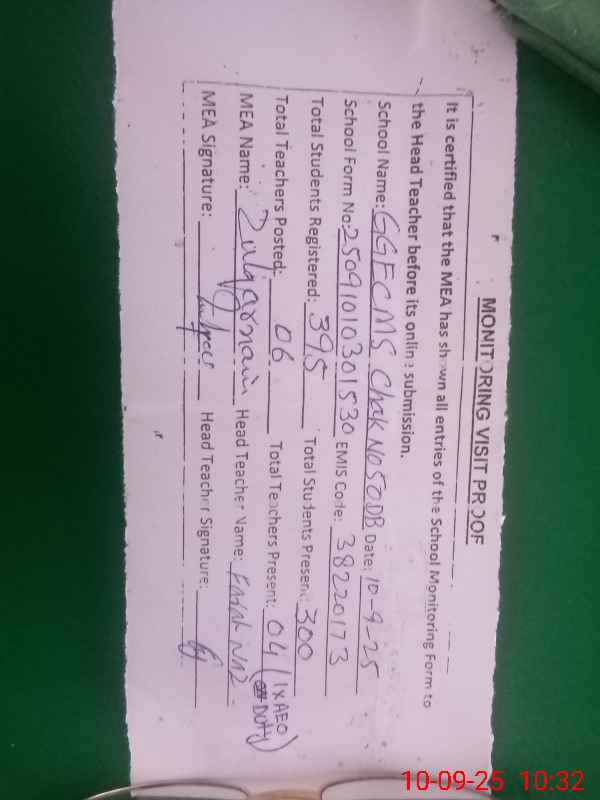 MONITORING VISIT PROOF
It is certified that the MEA has shown all entries of the School Monitoring Form to
the Head Teacher before its online submission.
School Name: GGECMS Chak NO 50 DB Date: 10-9-25
School Form No: 25091010301530 EMIS Code: 38220173
Total Students Registered: 395 Total Students Present: 300
Total Teachers Posted: 06 Total Teachers Present: 04 (1xAEO
Duty)
MEA Name: Zulqarnain Head Teacher Name:
MEA Signature: Head Teacher Signature:
10-09-25 10:32